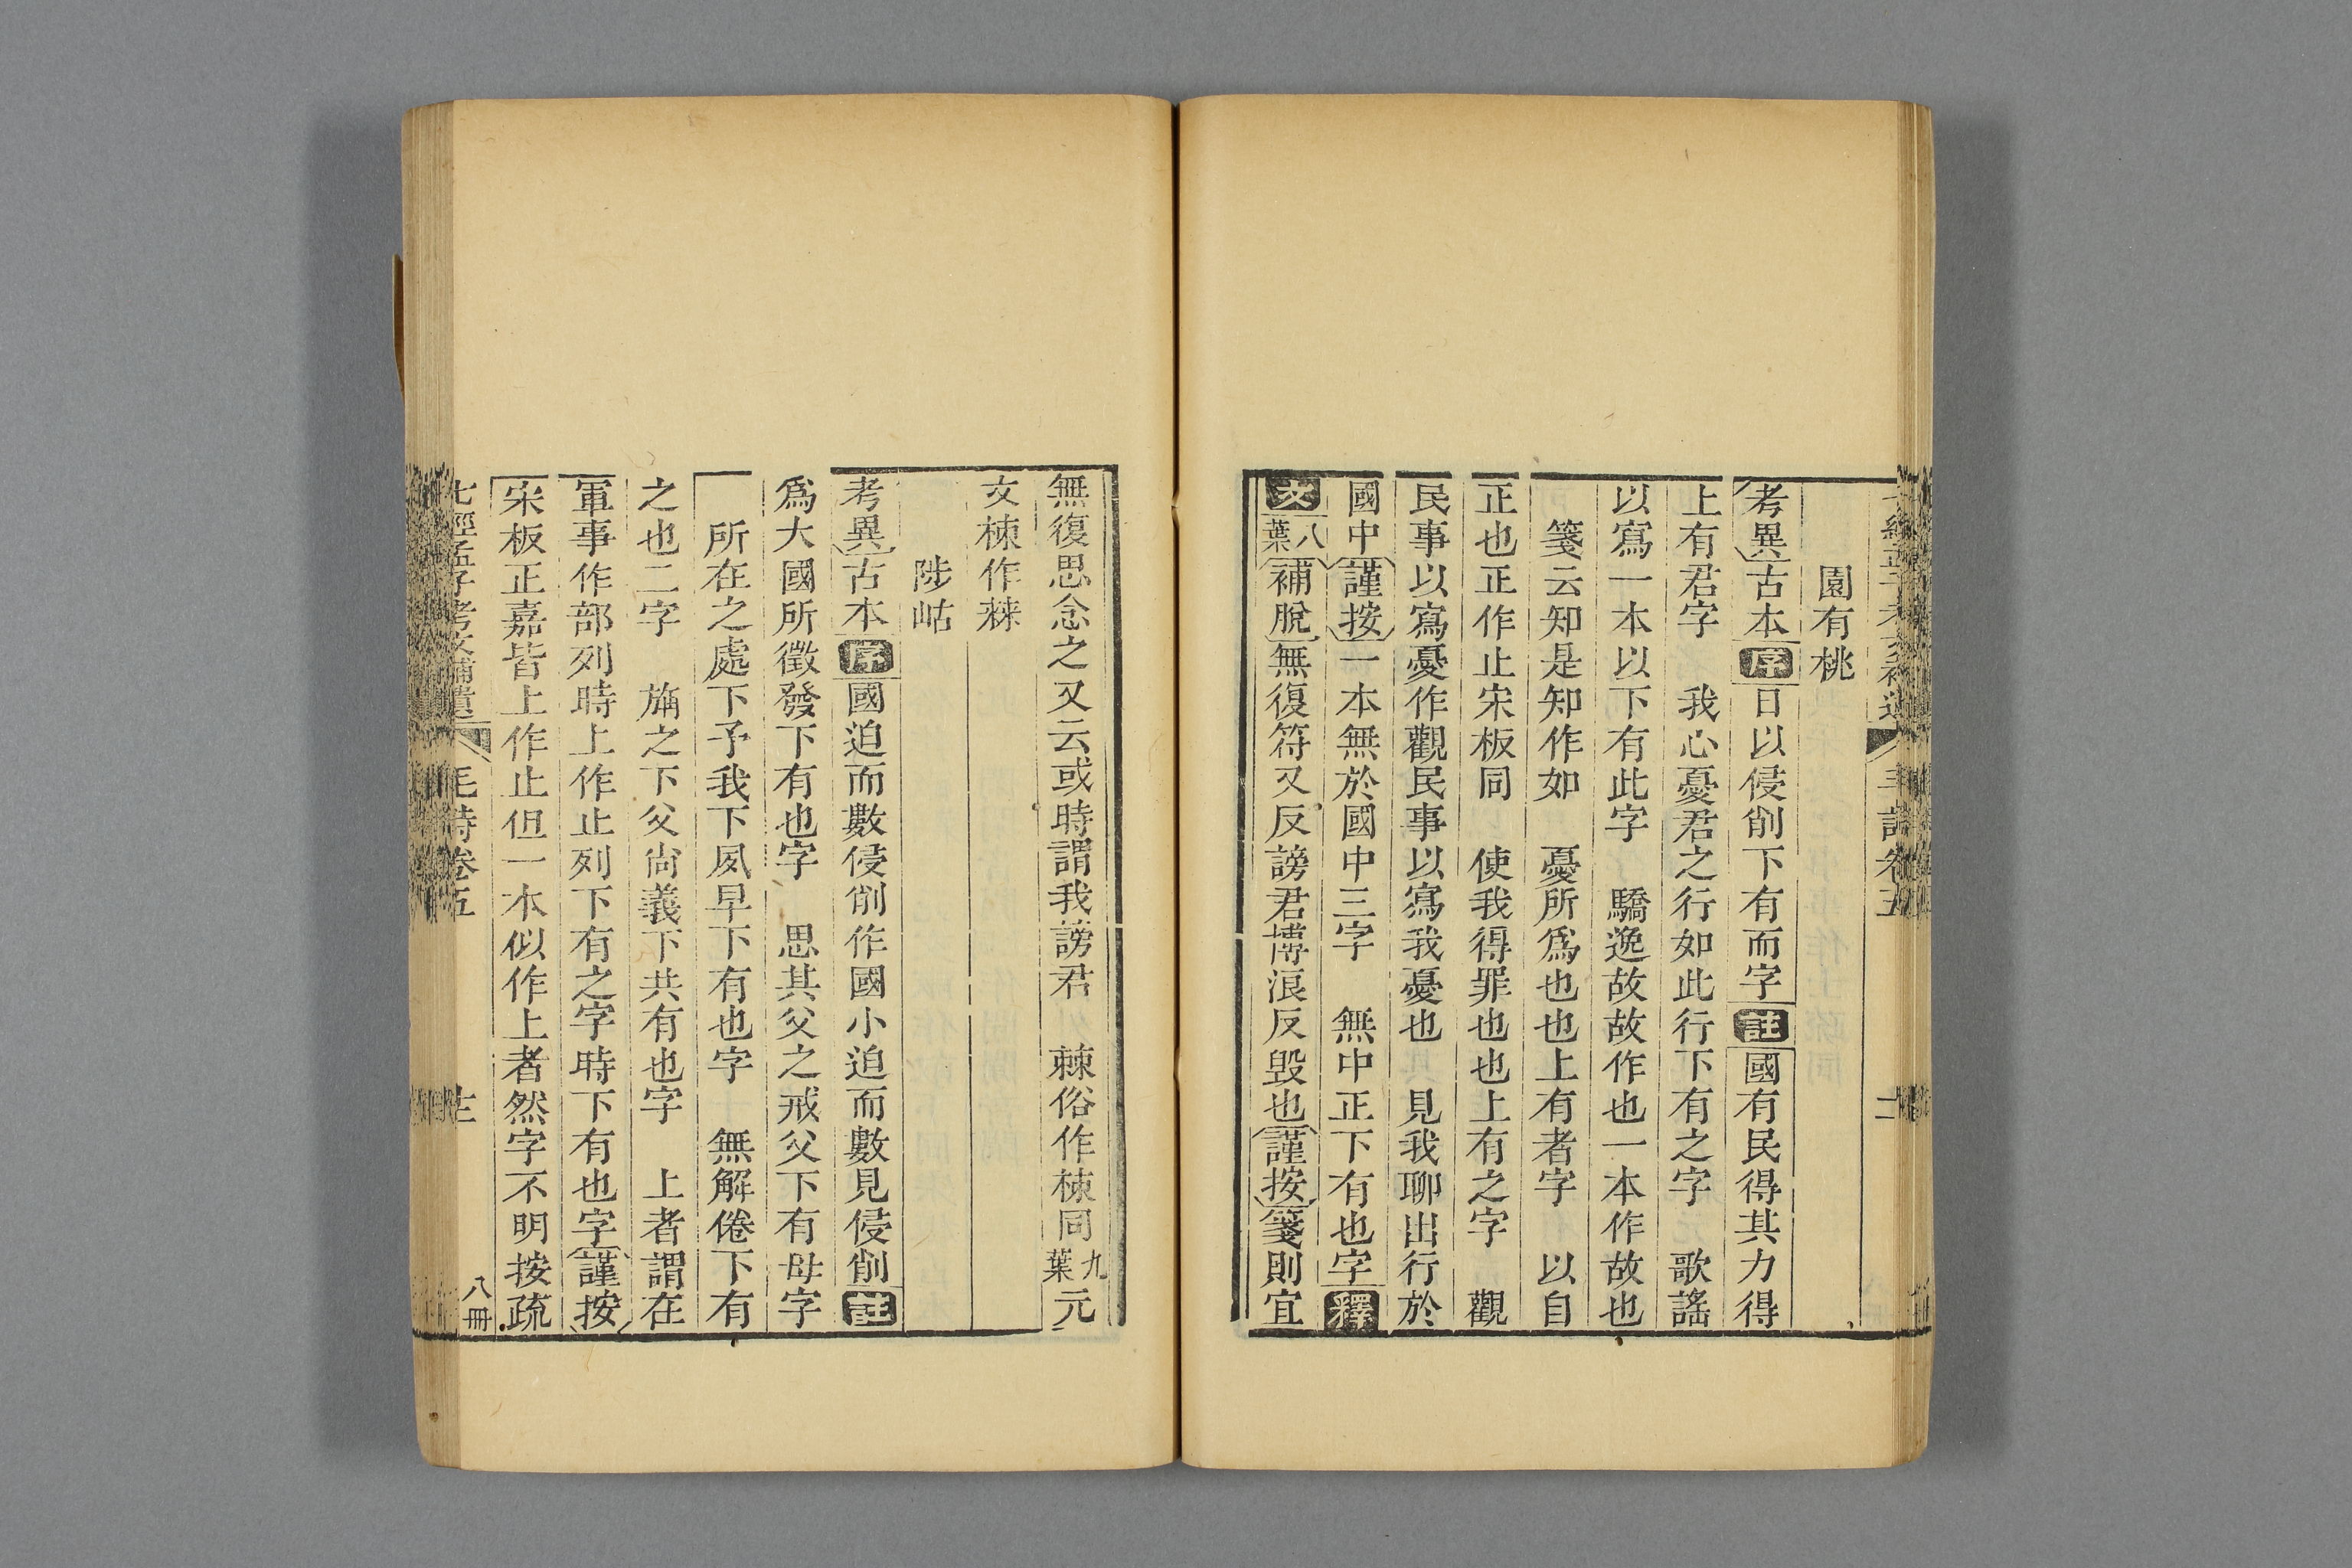 園有桃
考異古本序日以侵削下有而字註國有民得其力得
上有君字　我心憂君之行如此行下有之字　歌謠
以寫一本以下有此字　驕逸故故作也一本作故也
箋云知是知作如　憂所爲也也上有者字　以自
正也正作止宋板同　使我得罪也也上有之字　觀
民事以寫憂作觀民事以寫我憂也　見我聊出行於
國中謹按一本無於國中三字　無中正下有也字釋
文八葉補脫無復符又反謗君博浪反毀也謹按箋則宜
無復思念之又云或時謂我謗君　棘俗作朿同九葉元
文棟作棘
陟岵
考異古本序國迫而數侵削作國小迫而數見侵削註
爲大國所徵發下有也字　思其父之戒父下有母字
所在之處下予我下夙早下有也字　無解倦下有
之也二字　旃之下父尚義下共有也字　上者謂在
軍事作部列時上作止列下有之字時下有也字謹按
宋板正嘉皆上作止但一本似作上者然字不明按疏
七經孟子考文補遺　毛詩卷五　八冊